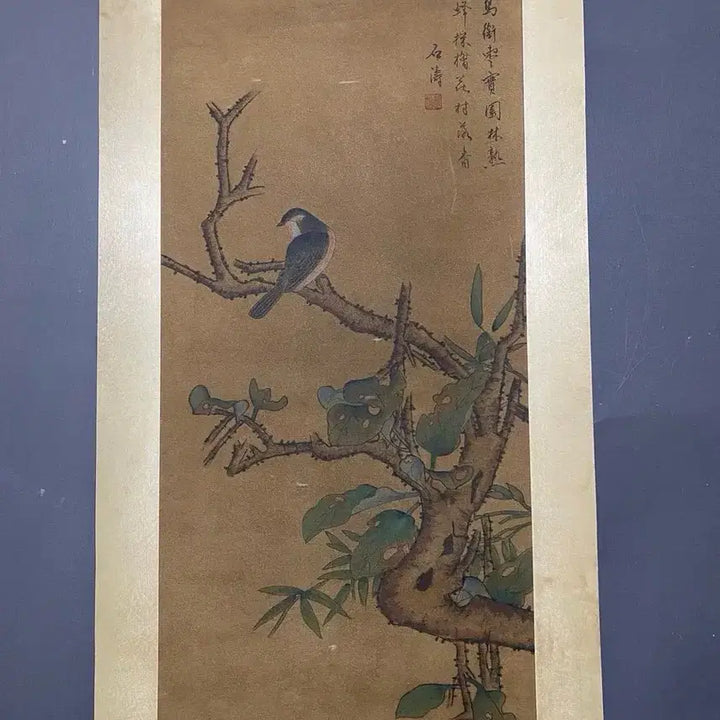 鳥銜棗實園林熟
蜂採檜花村落香
石濤